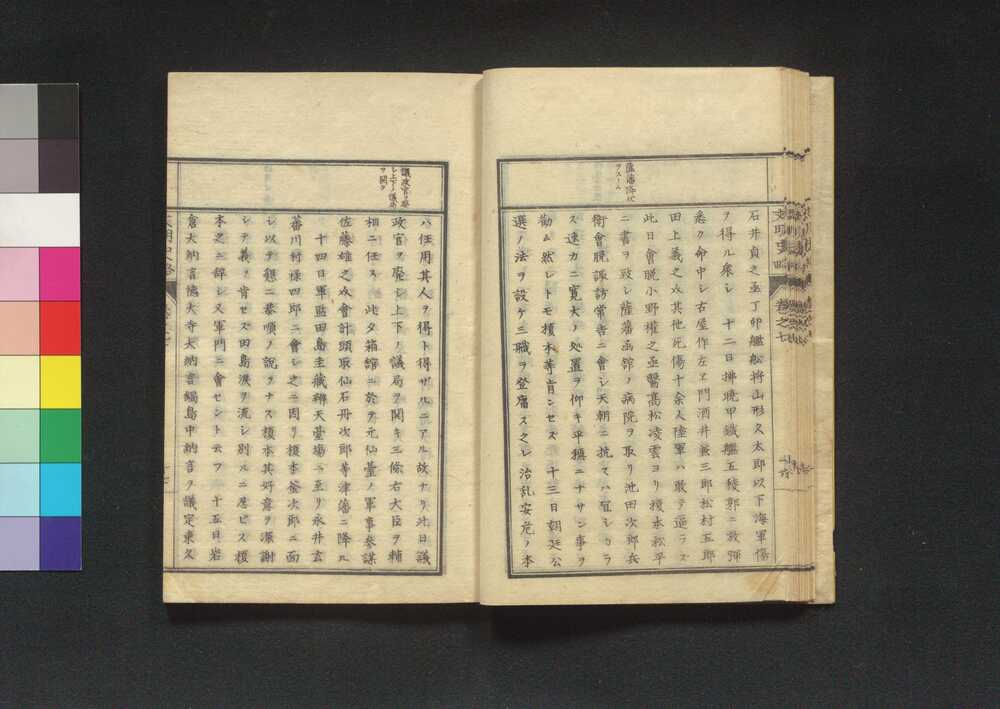 薩藩降伏
ヲスヽム
石井貞之丞丁卯艦舩将山形久太郎以下海軍傷
ヲ得ル衆シ 十二日拂曉甲鐵艦五稜郭ニ放彈
悉ク命中シ古屋作左エ門酒井兼三郎松村五郎
田上義之丞其他死傷十余人陸軍ハ敢テ逼ラズ
此日會脱小野權之丞醫高松凌雲ヨリ榎本松平
ニ書ヲ致シ薩藩函舘ノ病院ヲ取リ池田次郎兵
衛會脱諏訪常吉ニ會シ天朝ニ抗スハ冝シカラ
ス速カニ寛大ノ処置ヲ仰キ平穩ニナサン事ヲ
勸ム然レトモ榎本等肯ンセス 十三日朝廷公
選ノ法ヲ設ケ三職ヲ登庸ス之レ治乱安危ノ本
文明史略
巻之七
議政官ヲ廢
シ上下ノ議局
ヲ開ク
ハ任用其人ヲ得ト得ザルニアル故ナリ此日議
政官ヲ廢シ上下ノ議局ヲ開キ三條右大臣ヲ輔
相ニ任ス 此夕箱舘ニ於テ元仙臺ノ軍事參謀
佐藤雄之丞會計頭取仙石丹次郎等津藩ニ降ル
十四日軍監田島圭藏辨天臺場ニ至リ永井玄
蕃川村禄四郎ニ會シ之ニ因リ榎本釜次郎ニ面
シ以テ懇ニ恭順ノ説ヲナス榎本其好意ヲ深謝
シテ義ヲ肯セズ田島涙ヲ流シ別ルニ忍ビス榎
本之ニ辞シ又軍門ニ會セント云フ 十五日岩
倉大納言徳大寺大納言鍋島中納言ヲ議定東久